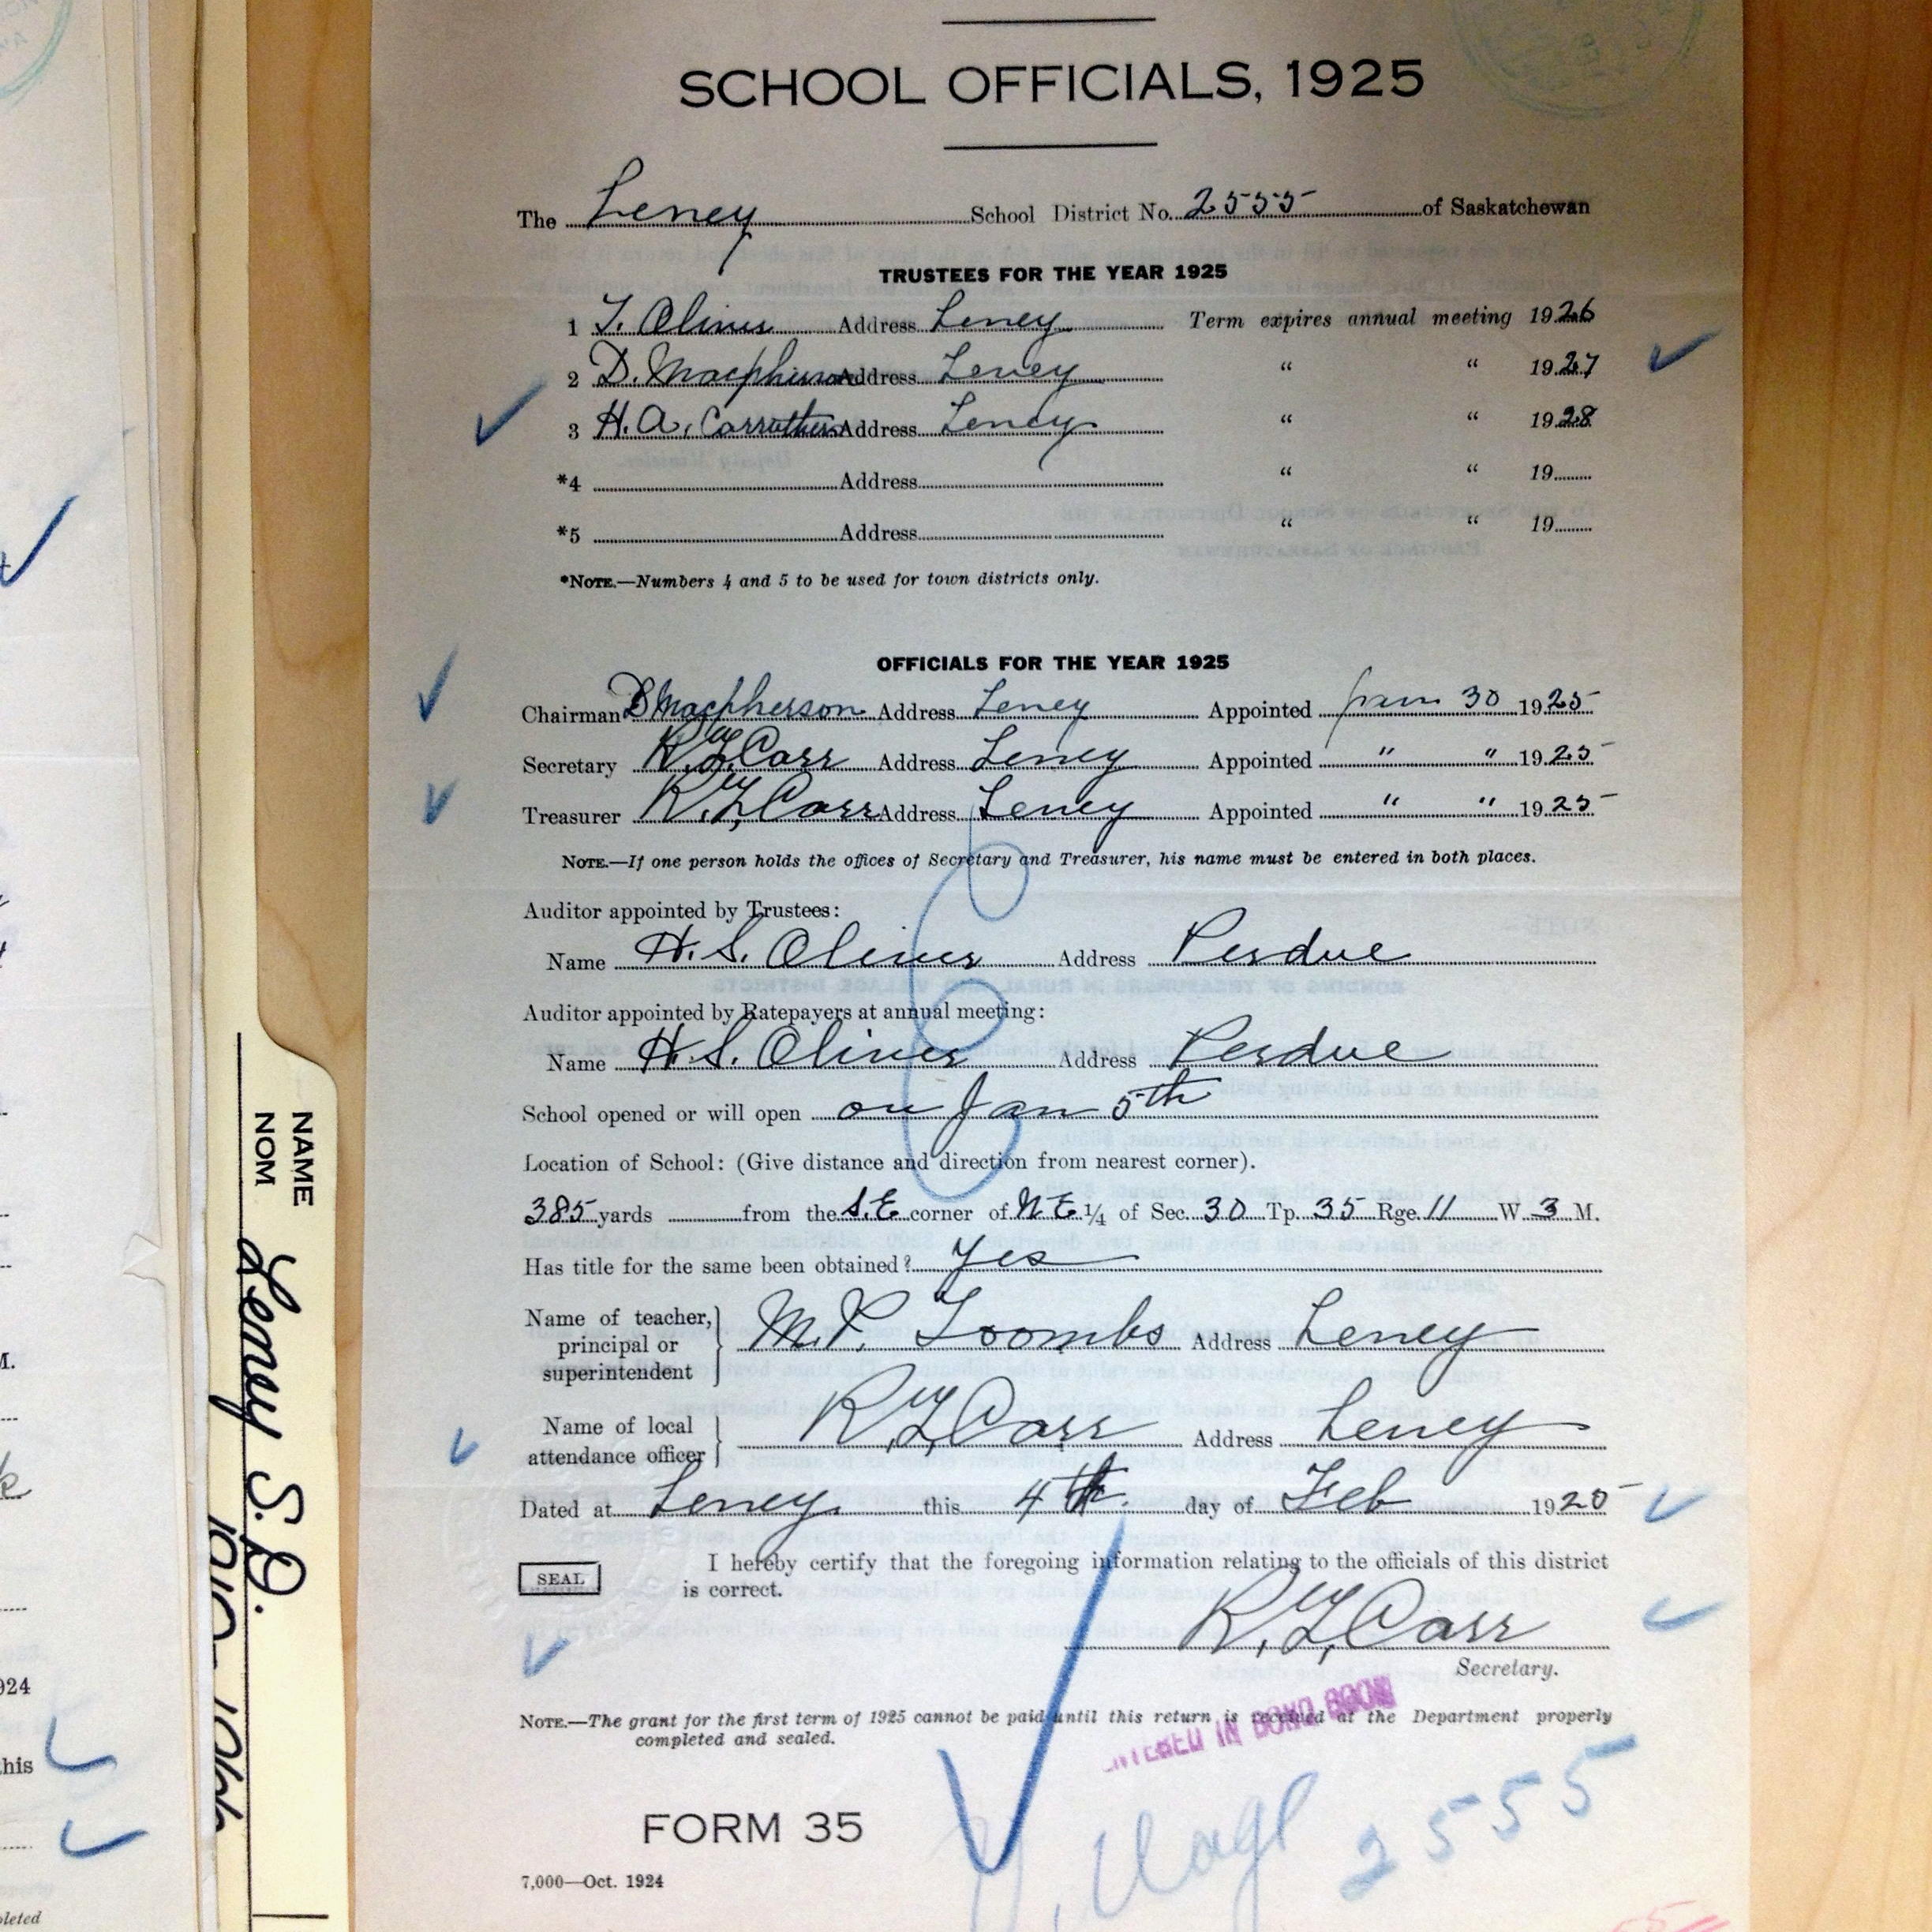 SCHOOL OFFICIALS, 1925
The Leney School District No. 2555 of Saskatchewan
TRUSTEES FOR THE YEAR 1925
1 T. Oliver Address Leney Term expires annual meeting 1926
2 D. Macpherson Address Leney " " 1927
3 H. A. Carruthers Address Leney " " 1928
*4 Address " " 19
*5 Address " " 19
*NOTE.—Numbers 4 and 5 to be used for town districts only.
OFFICIALS FOR THE YEAR 1925
Chairman D Macpherson Address Leney Appointed Jan 30 1925
Secretary Carr Address Leney Appointed " " 1925
Treasurer Carr Address Leney Appointed " " 1925
NOTE.—If one person holds the offices of Secretary and Treasurer, his name must be entered in both places.
Auditor appointed by Trustees:
Name H. S. Oliver Address Perdue
Auditor appointed by Ratepayers at annual meeting:
Name H. S. Oliver Address Perdue
School opened or will open on Jan 5th
Location of School: (Give distance and direction from nearest corner).
385 yards from the S.E. corner of N E 1/4 of Sec. 30 Tp. 35 Rge. 11 W. 3 M.
Has title for the same been obtained? Yes
Name of teacher, principal or superintendent M. P. Toombs Address Leney
Name of local attendance officer Carr Address Leney
Dated at Leney this 4th day of Feb 1925
I hereby certify that the foregoing information relating to the officials of this district
is correct.
SEAL
Carr
Secretary.
NOTE.—The grant for the first term of 1925 cannot be paid until this return is received at the Department properly
completed and sealed.
ENTERED IN BOND BOOK
FORM 35
2555
7,000—Oct. 1924
NAME
NOM
Leney S.D.
924
this